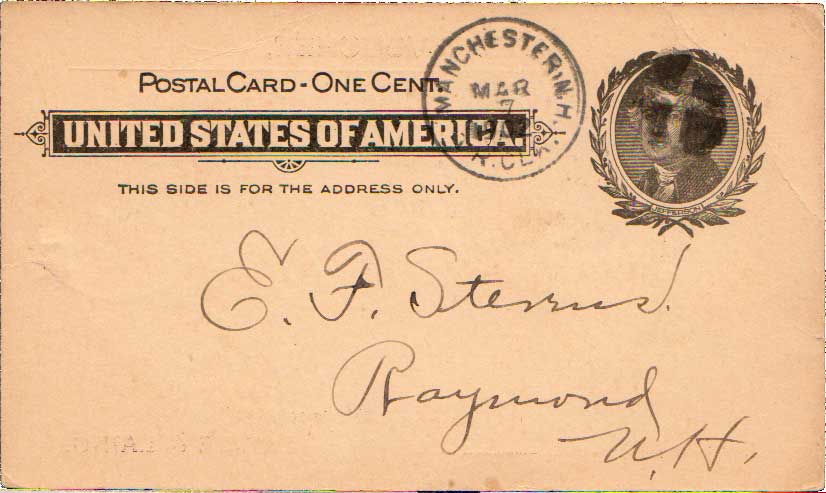 POSTAL CARD - ONE CENT.
UNITED STATES OF AMERICA.
THIS SIDE IS FOR THE ADDRESS ONLY.
MANCHESTER, N.H.
MAR
7
JEFFERSON
E. F. Stevens.
Raymond
N.H.